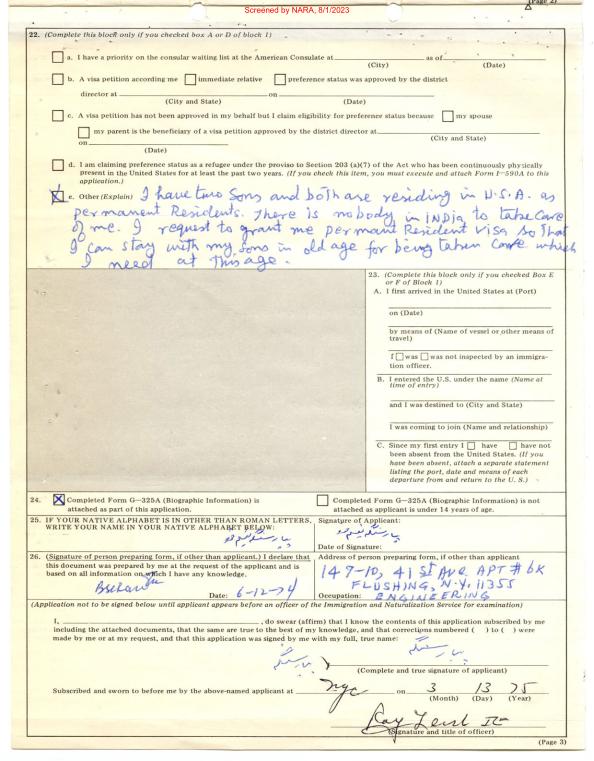 (Page 2)
Screened by NARA, 8/1/2023
22. (Complete this block only if you checked box A or D of block 1)
a. I have a priority on the consular waiting list at the American Consulate at as of
(City) (Date)
b. A visa petition according me immediate relative preference status was approved by the district
director at on
(City and State) (Date)
c. A visa petition has not been approved in my behalf but I claim eligibility for preference status because my spouse
my parent is the beneficiary of a visa petition approved by the district director at
(City and State)
on
(Date)
d. I am claiming preference status as a refugee under the proviso to Section 203 (a)(7) of the Act who has been continuously physically
present in the United States for at least the past two years. (If you check this item, you must execute and attach Form I-590A to this
application.)
e. Other (Explain) I have two sons and both are residing in U.S.A. as
permanent Residents. There is nobody in INDIA to take care
of me. I request to grant me permant Resident Visa so that
I can stay with my sons in old age for being taken care which
I need at this age.
23. (Complete this block only if you checked Box E
or F of Block 1)
A. I first arrived in the United States at (Port)
on (Date)
by means of (Name of vessel or other means of
travel)
I was was not inspected by an immigra-
tion officer.
B. I entered the U.S. under the name (Name at
time of entry)
and I was destined to (City and State)
I was coming to join (Name and relationship)
C. Since my first entry I have have not
been absent from the United States. (If you
have been absent, attach a separate statement
listing the port, date and means of each
departure from and return to the U.S.)
24. X Completed Form G-325A (Biographic Information) is
attached as part of this application.
Completed Form G-325A (Biographic Information) is not
attached as applicant is under 14 years of age.
25. IF YOUR NATIVE ALPHABET IS IN OTHER THAN ROMAN LETTERS,
WRITE YOUR NAME IN YOUR NATIVE ALPHABET BELOW:
Signature of Applicant:
Date of Signature:
26. (Signature of person preparing form, if other than applicant.) I declare that
this document was prepared by me at the request of the applicant and is
based on all information on which I have any knowledge.
Date: 6-12-74
Address of person preparing form, if other than applicant
147-10, 41 ST AVE APT # 6K
FLUSHING, N.Y. 11355
Occupation: ENGINEERING
(Application not to be signed below until applicant appears before an officer of the Immigration and Naturalization Service for examination)
I, , do swear (affirm) that I know the contents of this application subscribed by me
including the attached documents, that the same are true to the best of my knowledge, and that corrections numbered ( ) to ( ) were
made by me or at my request, and that this application was signed by me with my full, true name:
(Complete and true signature of applicant)
Subscribed and sworn to before me by the above-named applicant at NYC on 3 13 75
(Month) (Day) (Year)
(Signature and title of officer)
(Page 3)